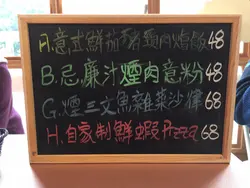 A.意式鮮茄豬頸肉焗飯48
B.忌廉汁煙肉意粉48
G.煙三文魚雜菜沙律68
H.自家制鮮蝦Pizza68